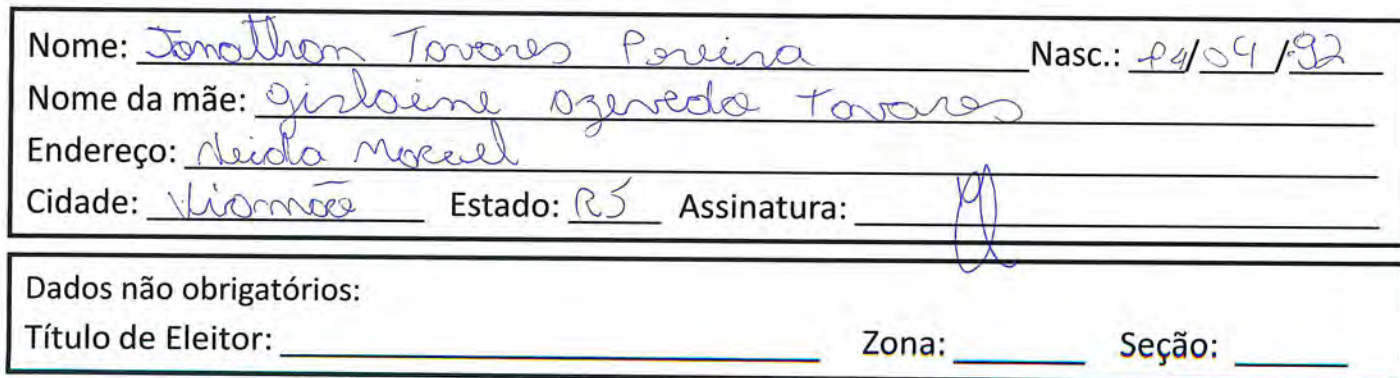 Nome: Jonathan Tavares Pereira Nasc.: 14/09/92
Nome da mãe: Gislaine Azevedo Tavares
Endereço: Neida Maciel
Cidade: Viamão Estado: RS Assinatura:
Dados não obrigatórios:
Título de Eleitor: Zona: Seção: